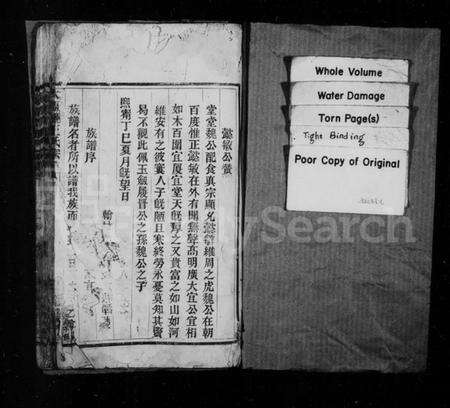 懿敏公贊
堂堂魏公配食真宗顯允懿敏維周之虎魏公在朝
百度惟正懿敏在外有聞無聲高明廣大宜公宜相
如木百圍宜厦宜堂天旣厚之又貴富之如山如河
維安有之彼寠人子旣陋且寒終勞永憂莫知其賢
曷不觀此佩玉劍履晉公之孫魏公之子
熙甯丁巳夏月旣望日
族譜序
族譜名者所以譜我族而
Whole Volume
Water Damage
Torn Page(s)
Tight Binding
Poor Copy of Original
FamilySearch